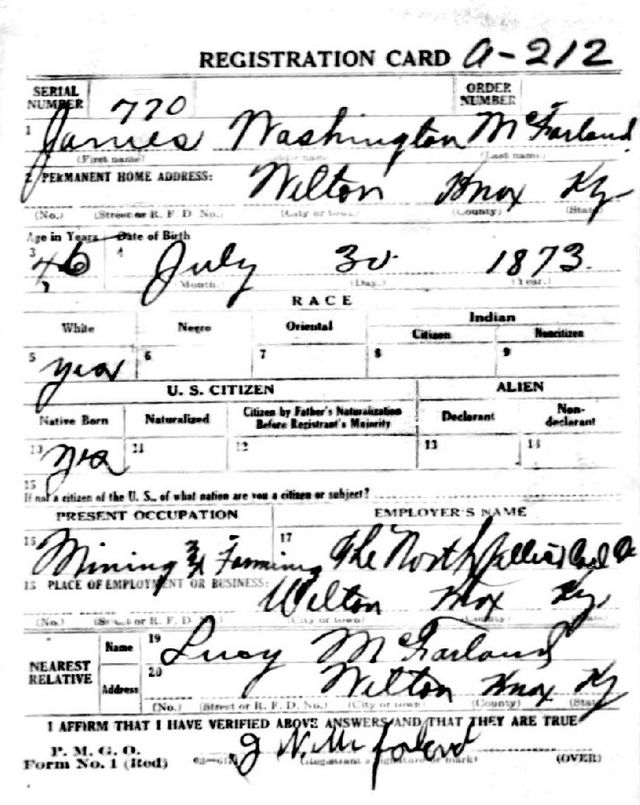 REGISTRATION CARD A-212
SERIAL NUMBER 770 ORDER NUMBER
1 James Washington McFarland
(First name) (Last name)
2 PERMANENT HOME ADDRESS: Wilton Knox Ky
(No.) (Street or R. F. D. No.) (City or town) (County) (State)
Age in Years Date of Birth
3 46 4 July 30 1873
(Month.) (Day.) (Year.)
RACE
White Negro Oriental Indian
Citizen Noncitizen
5 yes 6 7 8 9
U. S. CITIZEN ALIEN
Native Born Naturalized Citizen by Father's Naturalization Before Registrant's Majority Declarant Non-declarant
10 yes 11 12 13 14
15
If not a citizen of the U. S., of what nation are you a citizen or subject?
PRESENT OCCUPATION EMPLOYER'S NAME
16 Mining & Farming 17 The North Coal Co
18 PLACE OF EMPLOYMENT OR BUSINESS: Wilton Knox Ky
(No.) (Street or R. F. D. (City or town) (County) (State)
NEAREST RELATIVE Name 19 Lucy McFarland
Address 20 Wilton Knox Ky
(No.) (Street or R. F. D. No.) (City or town) (County) (State)
I AFFIRM THAT I HAVE VERIFIED ABOVE ANSWERS AND THAT THEY ARE TRUE
P. M. G. O.
Form No. 1 (Red) (Registrant's signature or mark) (OVER)